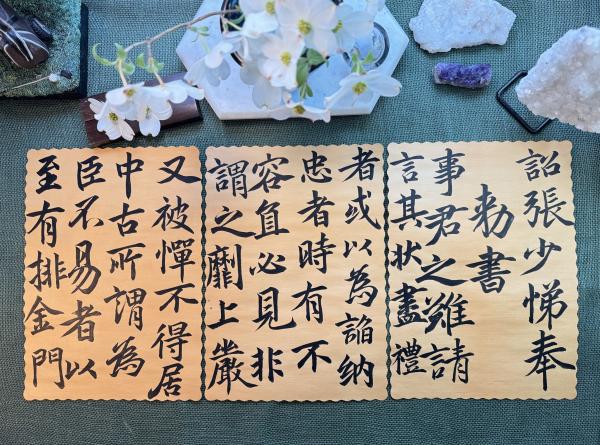 詔張少悌奉
勑書
事君之難請
言其状盡禮
者或以為諂纳
忠者時有不
容直必見非
謂之劘上嚴
又被憚不得居
中古所謂為
臣不易者以
至有排金門